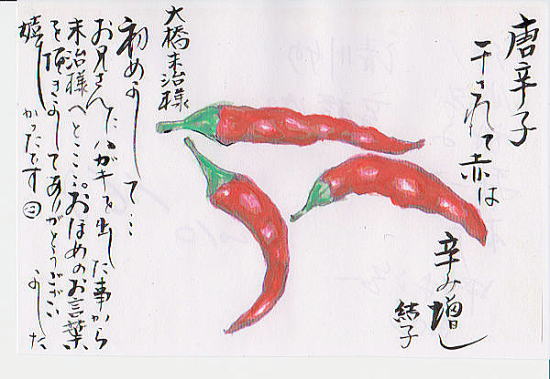 唐辛子
干されて赤は
辛み増し
結子
大橋末治様
初めまして…
お兄さんにハガキを出した事から
末治様へと……おほめのお言葉
を頂きましてありがとうございました
嬉しかったです